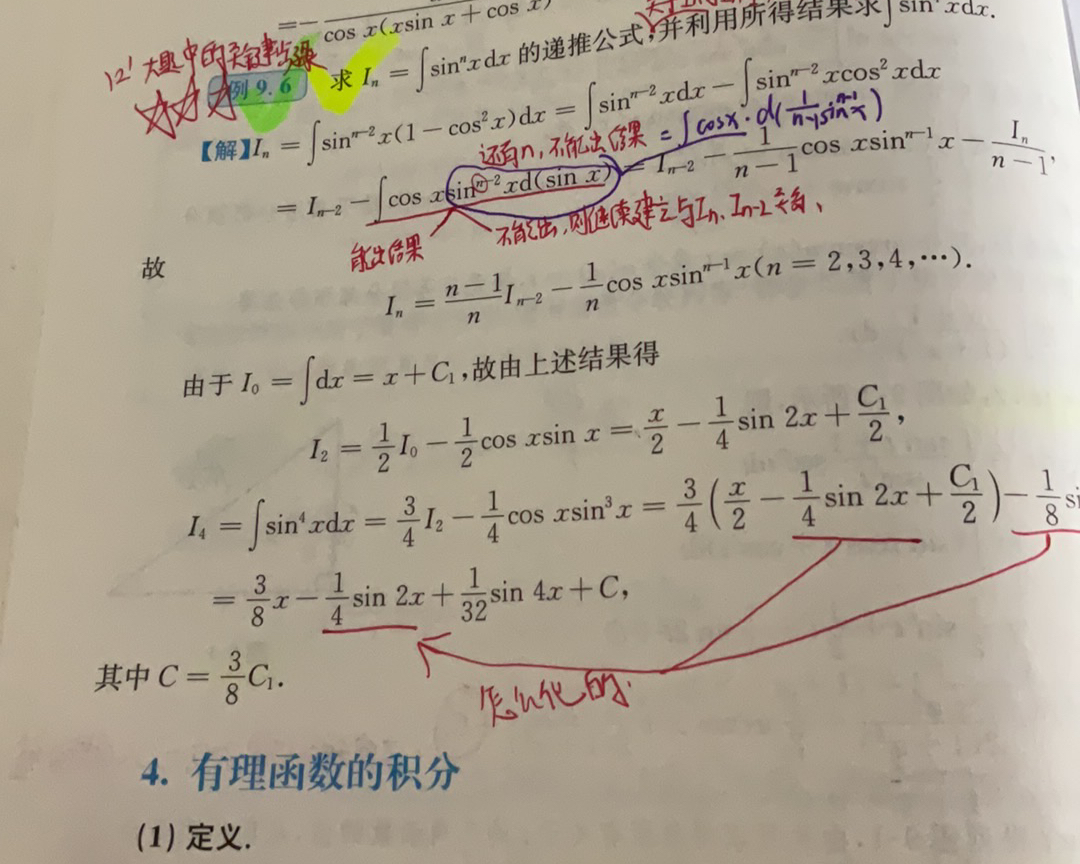 =-
cos x(xsin x + cos x)
12' 大题中的关键步骤
例 9.6 求 Iₙ = ∫sinⁿxdx 的递推公式,并利用所得结果求∫sin⁴xdx.
【解】Iₙ = ∫sinⁿ⁻²x(1−cos²x)dx = ∫sinⁿ⁻²xdx − ∫sinⁿ⁻²xcos²xdx
还有n,不能出结果 = ∫cosx·d(1/(n-1) sinⁿ⁻¹x)
= Iₙ₋₂ − ∫cos xsinⁿ⁻²xd(sin x) = Iₙ₋₂ − 1/(n−1) cos xsinⁿ⁻¹x − Iₙ/(n−1),
能出结果 不能出,则继续建立与Iₙ、Iₙ₋₂关系、
故
Iₙ = (n−1)/n Iₙ₋₂ − 1/n cos xsinⁿ⁻¹x(n = 2,3,4,⋯).
由于 I₀ = ∫dx = x + C₁,故由上述结果得
I₂ = 1/2 I₀ − 1/2 cos xsin x = x/2 − 1/4 sin 2x + C₁/2,
I₄ = ∫sin⁴xdx = 3/4 I₂ − 1/4 cos xsin³x = 3/4 (x/2 − 1/4 sin 2x + C₁/2) − 1/8 si
= 3/8 x − 1/4 sin 2x + 1/32 sin 4x + C,
其中 C = 3/8 C₁.
怎么化的.
4. 有理函数的积分
(1) 定义.